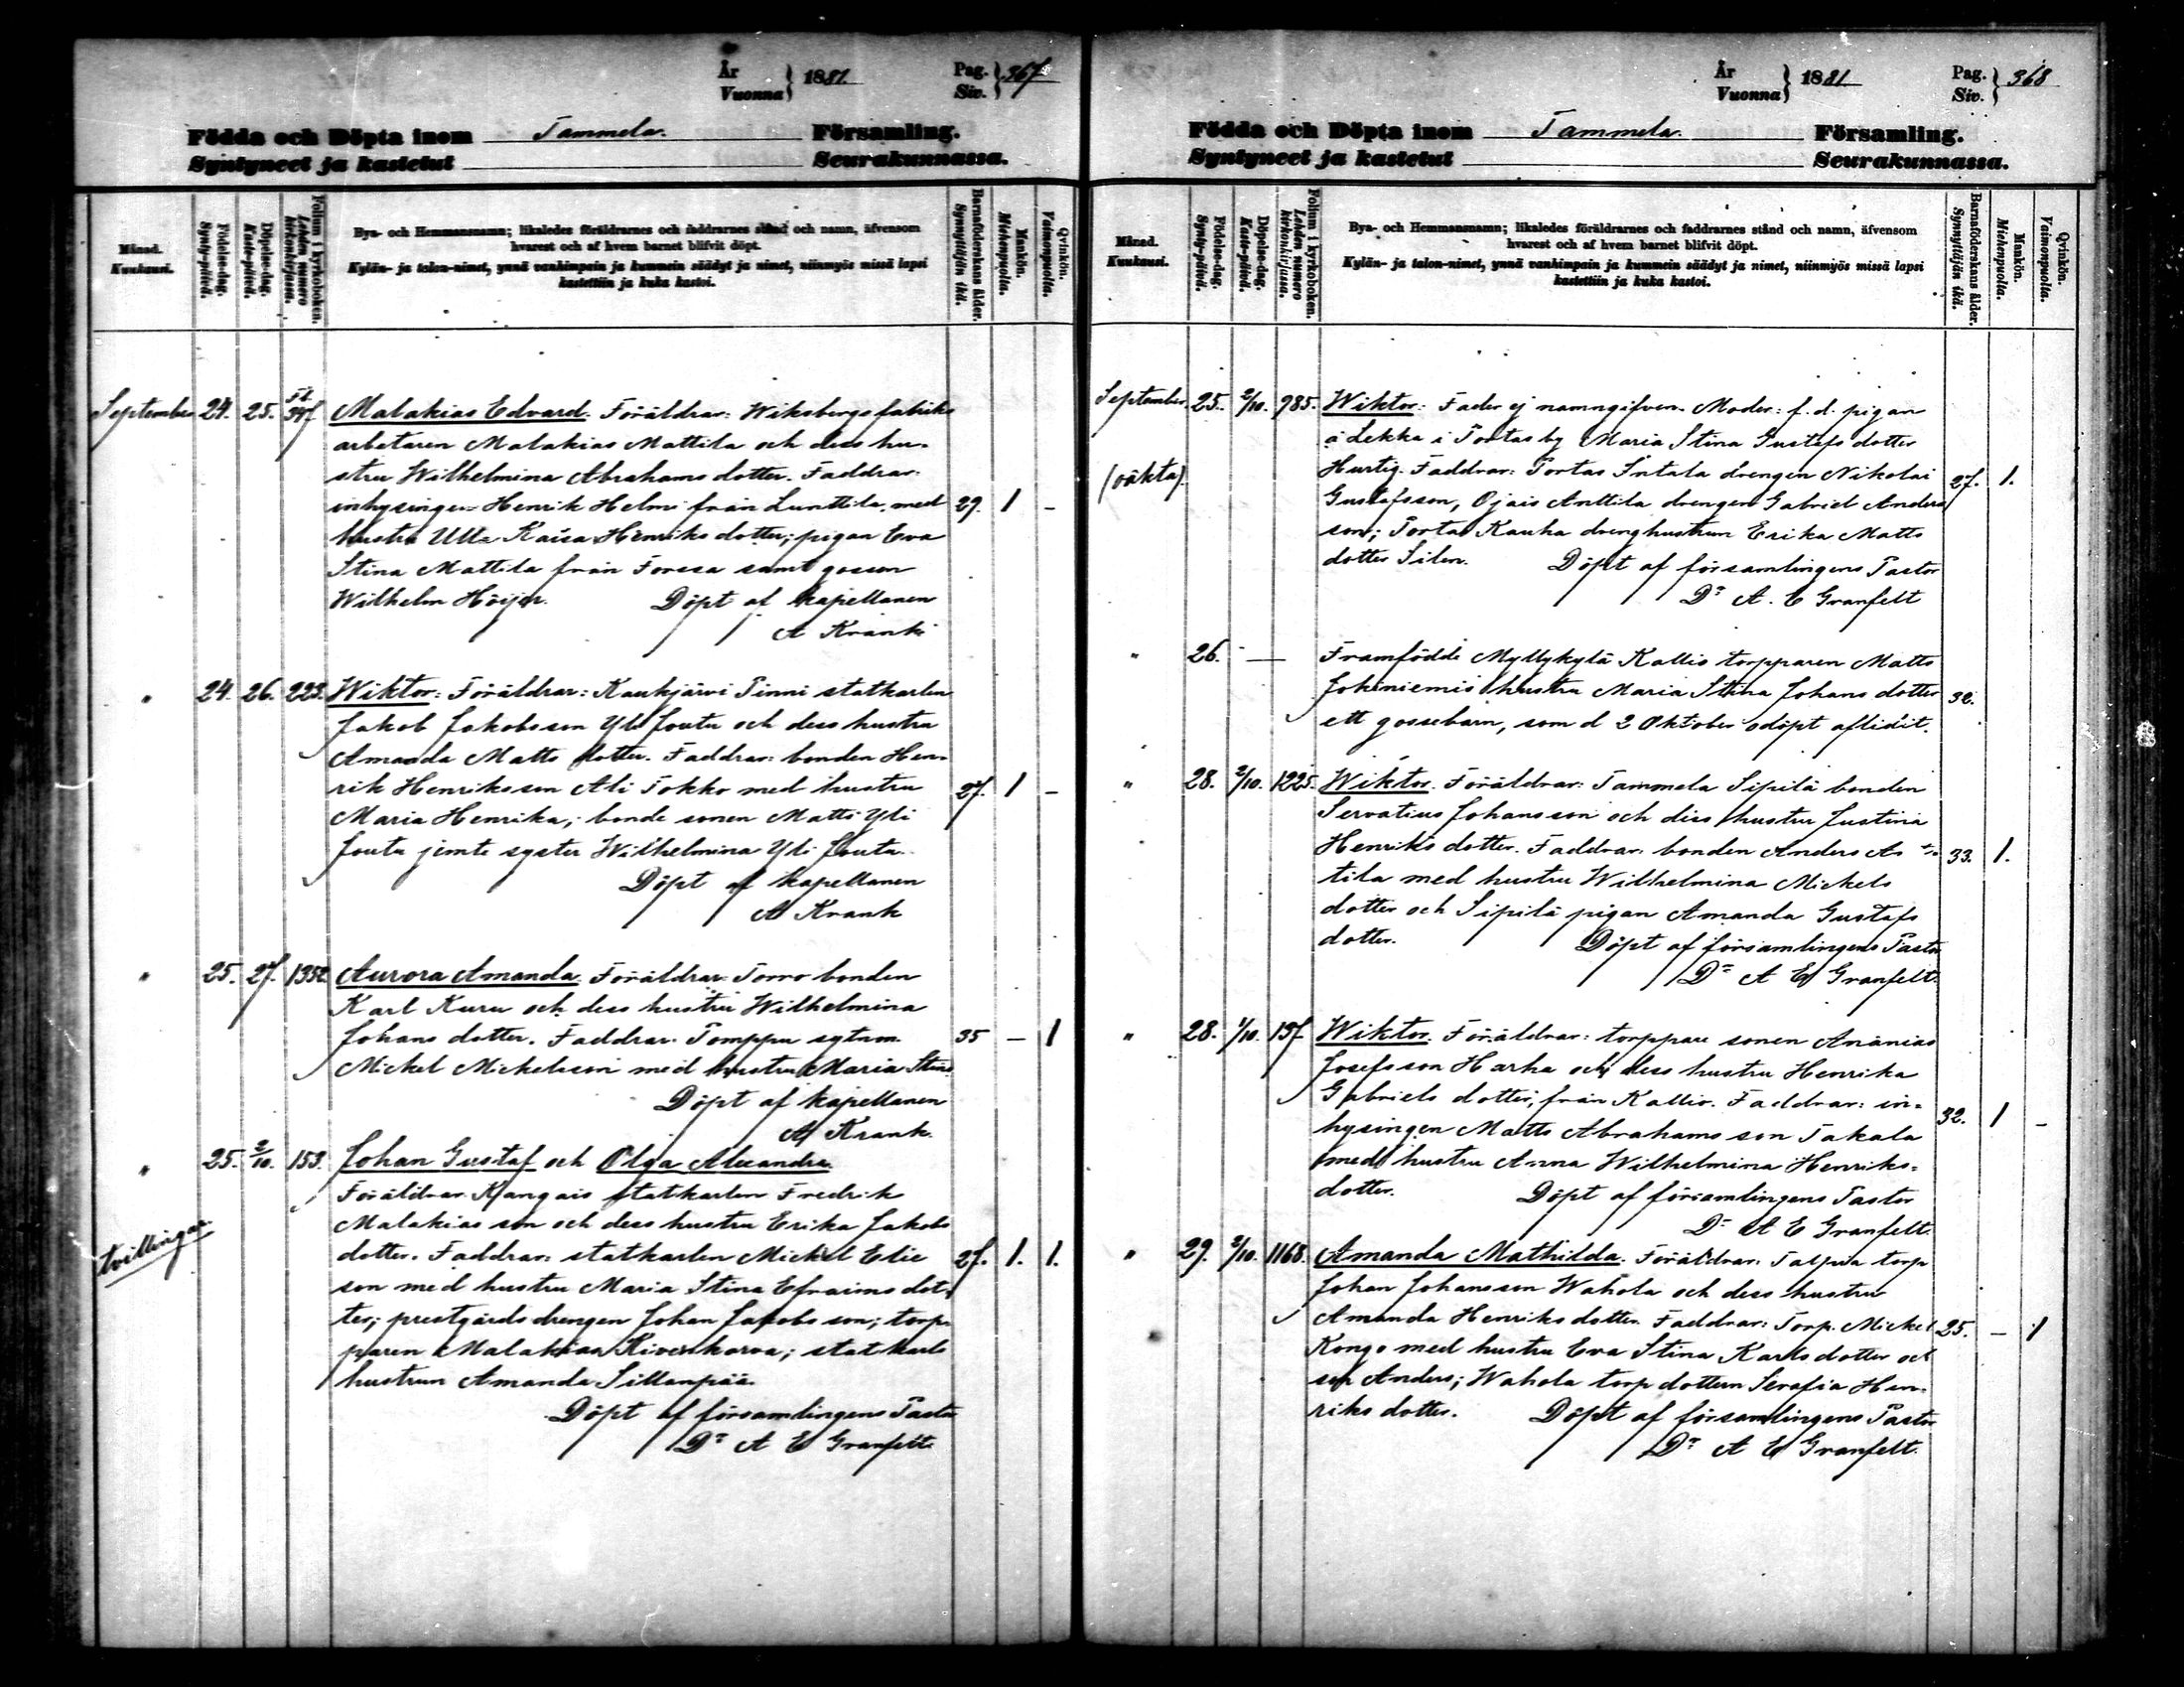 År Vuonna } 1881. Pag. Siv. } 367
Födda och Döpta inom Tammela. Församling.
Syntyneet ja kastetut Seurakunnassa.
Månad. Kuukausi.
Födelse-dag. Synty-päivä.
Döpelse-dag. Kaste-päivä.
Folium i kyrkoboken. Lehden numero kirkonkirjassa.
Bya- och Hemmansnamn; likaledes föräldrarnes och faddrarnes stånd och namn, äfvensom
hvarest och af hvem barnet blifvit döpt.
Kylän- ja talon-nimet, ynnä vanhimpain ja kummein säädyt ja nimet, niinmyös missä lapsi
kastettiin ja kuka kastoi.
Barnaföderskans ålder. Synnyttäjän ikä.
Mankön. Miehenpuolta.
Qvinkön. Vaimonpuolta.
September 24. 25. Malakias Edvard. Föräldrar: Wiksbergs fabriks
arbetaren Malakias Mattila och dess hu-
stru Wilhelmina Abrahams dotter. Faddrar:
inhysingen Henrik Helmi från Lunttila, med 29. 1 -
hustru Ulla Kaisa Henriks dotter; pigan Eva
Stina Mattila från Forssa samt gossen
Wilhelm Höijer. Döpt af kapellanen
A Krank
" 24. 26. 223. Wiktor: Föräldrar: Kaukjärvi Pinni statkarlen
Jakob Jakobsson Yli Jouta och dess hustru
Amanda Matts dotter. Faddrar: bonden Hen-
rik Henriksson Ali Tokko med hustru 27. 1 -
Maria Henrika; bonde sonen Matti Yli
Jouta jemte syster Wilhelmina Yli Jouta.
Döpt af kapellanen
A Krank
" 25. 27. 1352 Aurora Amanda. Föräldrar: Torro bonden
Karl Kuru och dess hustru Wilhelmina
Johans dotter. Faddrar: Pomppu sytnm. 35 - 1
Mickel Mickelsson med hustru Maria Stina
Döpt af kapellanen
A Krank.
" 25. 2/10. 153. Johan Gustaf och Olga Alexandra.
Föräldrar: Kangais statkarlen Fredrik
Malakias son och dess hustru Erika Jakobs
tvillingar dotter. Faddrar: statkarlen Mickel Elie 27. 1. 1.
son med hustru Maria Stina Efraims dot-
ter; prestgårds drengen Johan Jakobs son; torp-
paren Malakias Kivenkorva; statkarls
hustrun Amanda Sillanpää.
Döpt af församlingens Pastor
Dr A E Granfelt.
År Vuonna } 1881 Pag. Siv. } 368
Födda och Döpta inom Tammela. Församling.
Syntyneet ja kastetut Seurakunnassa.
Månad. Kuukausi.
Födelse-dag. Synty-päivä.
Döpelse-dag. Kaste-päivä.
Folium i kyrkoboken. Lehden numero kirkonkirjassa.
Bya- och Hemmansnamn; likaledes föräldrarnes och faddrarnes stånd och namn, äfvensom
hvarest och af hvem barnet blifvit döpt.
Kylän- ja talon-nimet, ynnä vanhimpain ja kummein säädyt ja nimet, niinmyös missä lapsi
kastettiin ja kuka kastoi.
Barnaföderskans ålder. Synnyttäjän ikä.
Mankön. Miehenpuolta.
Qvinkön. Vaimonpuolta.
September. 25. 2/10. 985. Wiktor: Fader ej namngifven. Moder: f. d. pigan
å Lekka i Portas by Maria Stina Gustafs dotter
(oäkta). Hurtig. Faddrar: Portas Intala drengen Nikolai 27. 1.
Gustafsson, Ojais Anttila drengen Gabriel Anders
son; Portas Kauha drenghustrun Erika Matts
dotter Silen. Döpt af församlingens Pastor
Dr A. E Granfelt
" 26. — Framfödde Myllykylä Kallio torpparen Matts
Jokiniemis hustru Maria Stina Johans dotter 32.
ett gossebarn, som d 2 Oktober odöpt aflidit.
" 28. 2/10. 1225. Wiktor. Föräldrar: Tammela Sipilä bonden
Servatius Johansson och dess hustru Justina
Henriks dotter. Faddrar: bonden Anders At 33. 1.
tila med hustru Wilhelmina Mickels
dotter och Sipilä pigan Amanda Gustafs
dotter. Döpt af församlingens Pastor
Dr A E Granfelt.
" 28. 1/10. 197 Wiktor. Föräldrar: torppare sonen Ananias
Josefsson Harha och dess hustru Henrika
Gabriels dotter, från Kallio. Faddrar: in-
hysingen Matts Abrahams son Takala 32. 1 -
med hustru Anna Wilhelmina Henriks-
dotter. Döpt af församlingens Pastor
Dr A E Granfelt.
" 29. 2/10. 1168. Amanda Mathilda. Föräldrar: Talpia torp
Johan Johansson Wahola och dess hustru
Amanda Henriks dotter. Faddrar: Torp. Mickel 25. - 1
Kongo med hustru Eva Stina Karls dotter och
son Anders; Wahola torp dottern Serafia Hen-
riks dotter. Döpt af församlingens Pastor
Dr A E Granfelt.